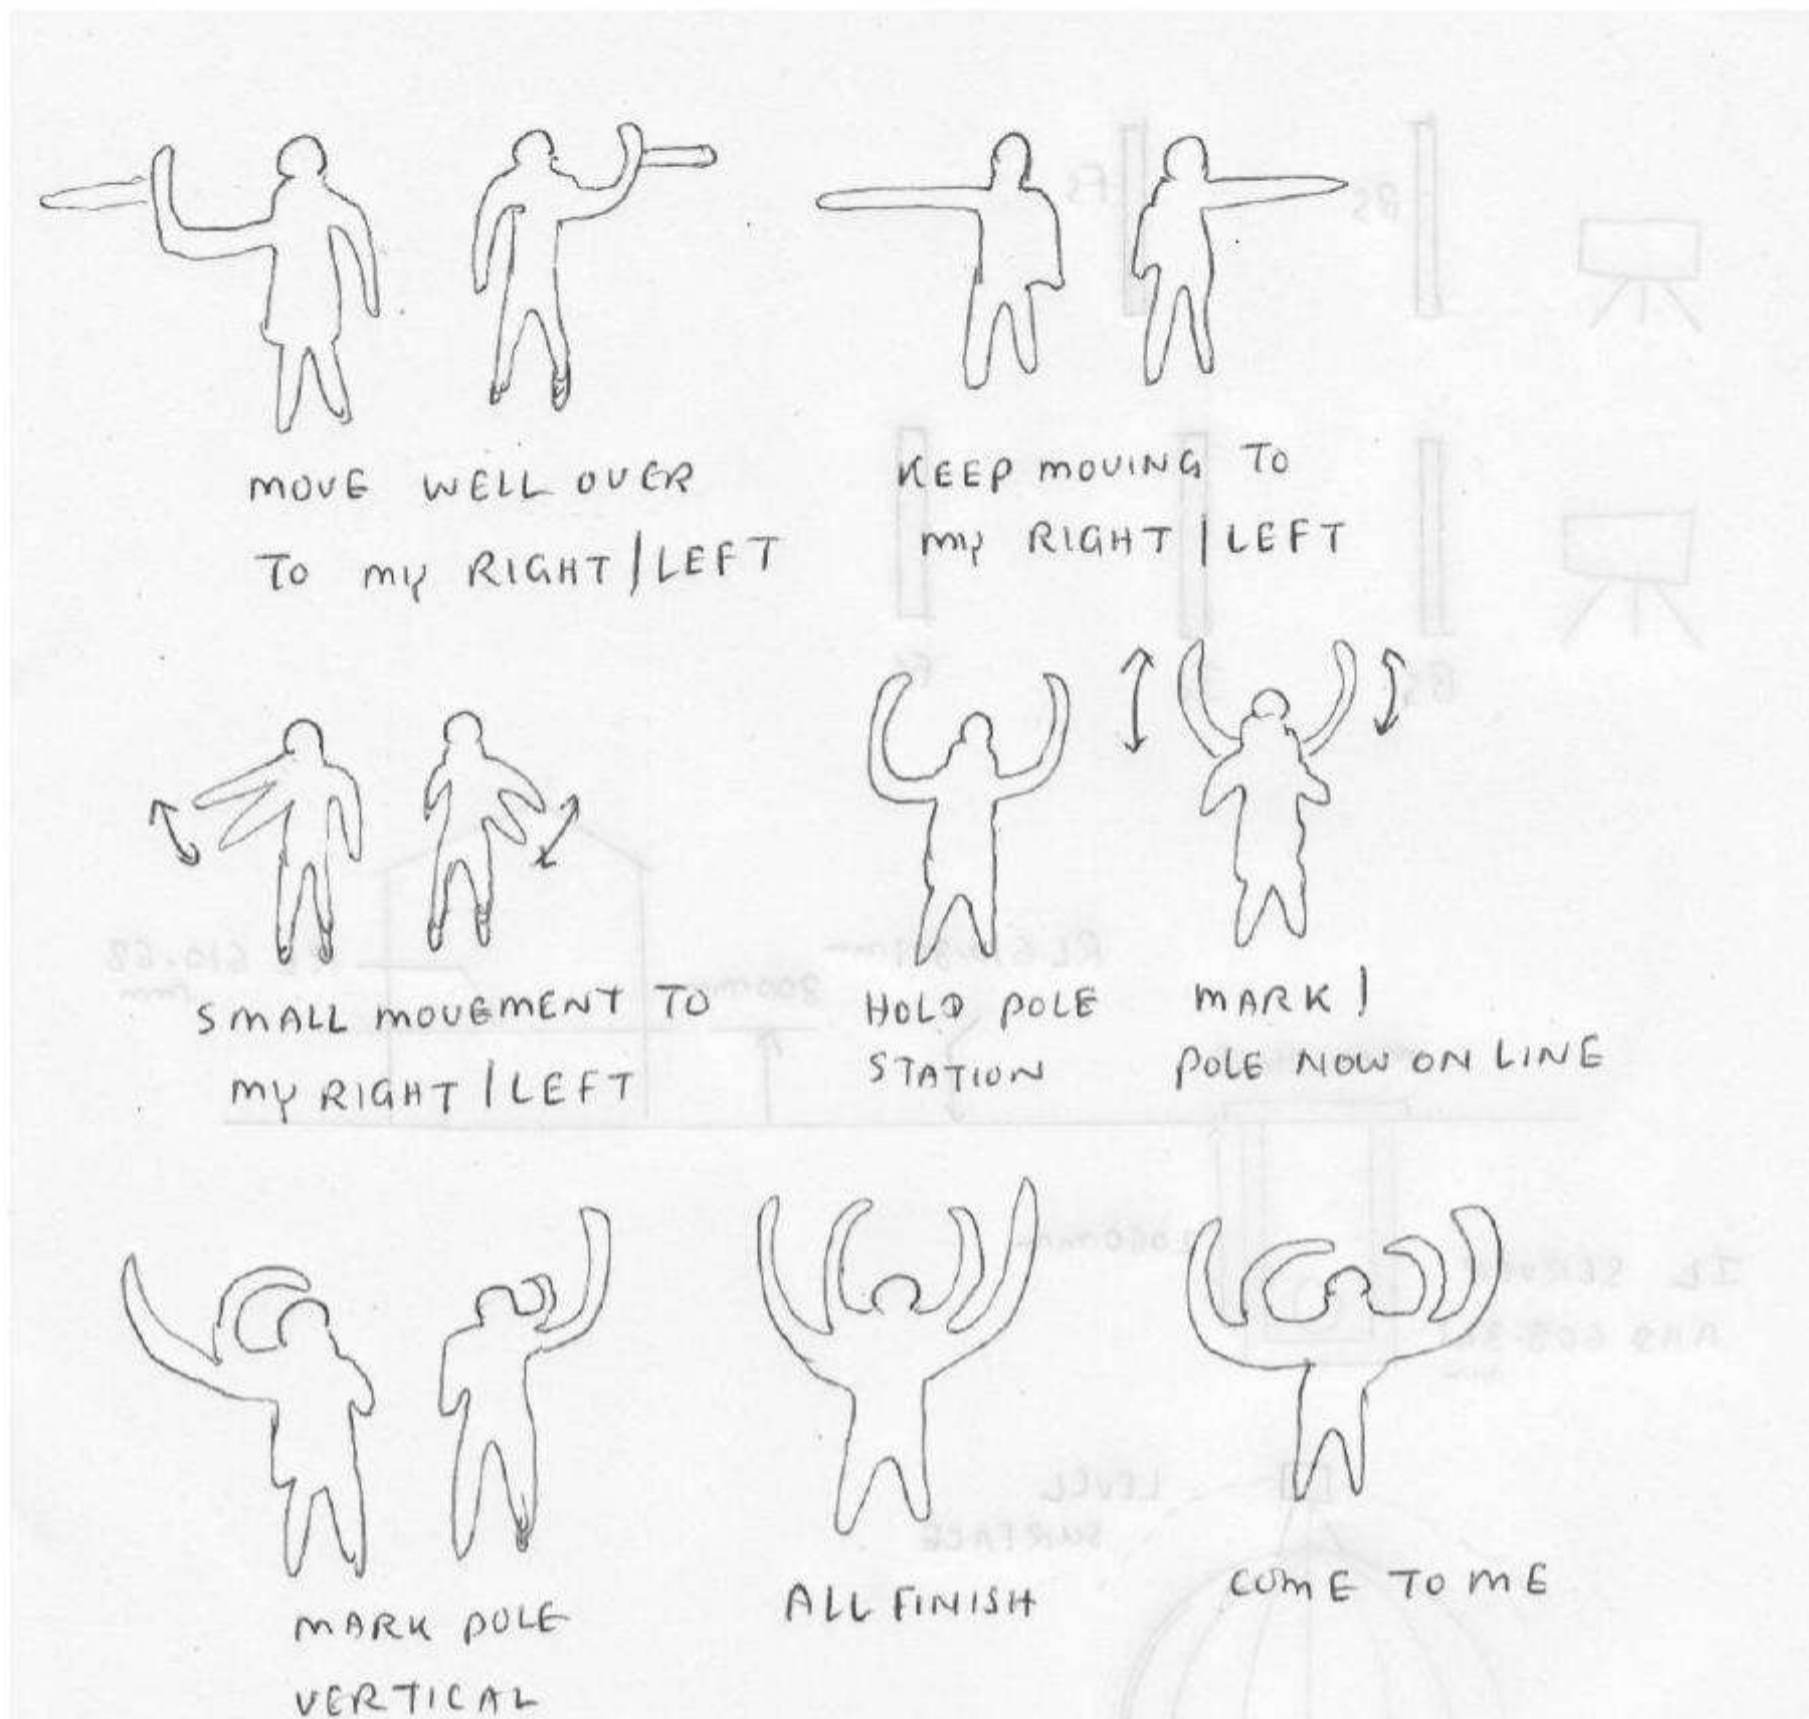 MOVE WELL OVER
TO MY RIGHT/LEFT
KEEP MOVING TO
MY RIGHT/LEFT
SMALL MOVEMENT TO
MY RIGHT/LEFT
HOLD POLE
STATION
MARK!
POLE NOW ON LINE
MARK POLE
VERTICAL
ALL FINISH
COME TO ME
FS
BS
BS
610.68
800mm
LEVEL
SURFACE